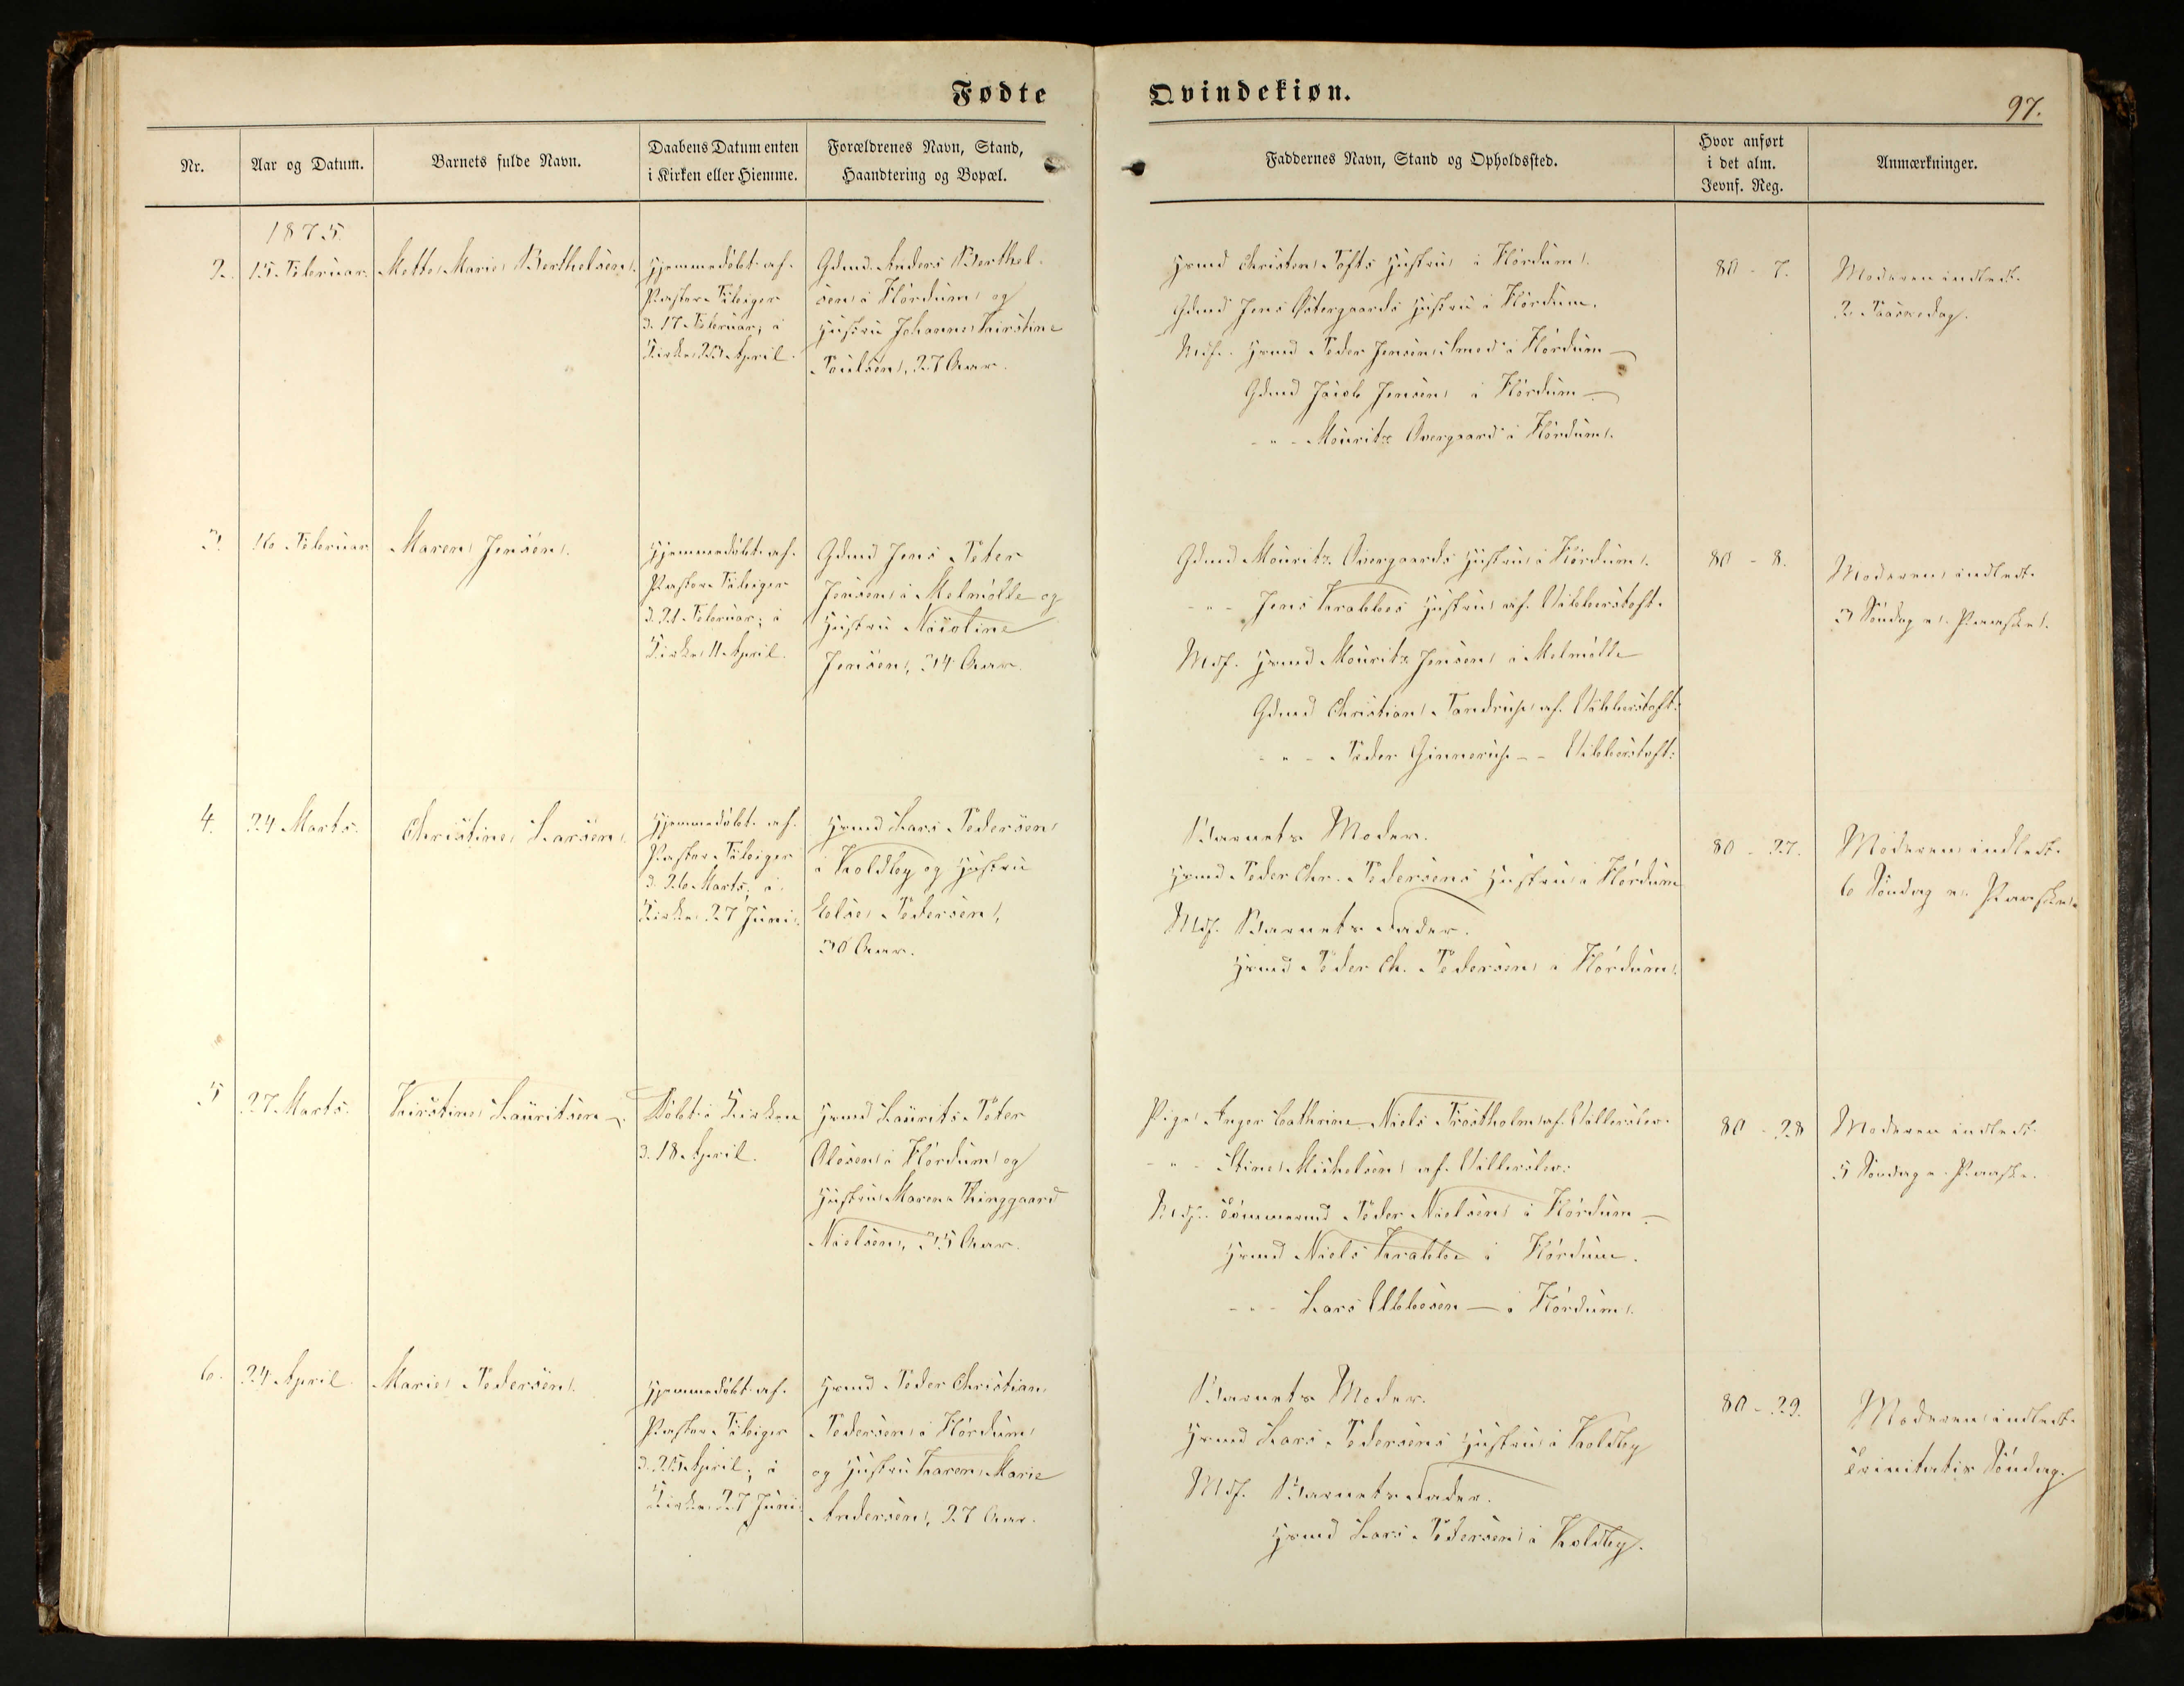 Fødte Qvindekiøn.
97.
Nr.
Aar og Datum.
Barnets fulde Navn.
Daabens Datum enten
i Kirken eller Hiemme.
Forældrenes Navn, Stand,
Haandtering og Bopæl.
Faddernes Navn, Stand og Opholdssted.
Hvor anført
i det alm.
Jevnf. Reg.
Anmærkninger.
1875.
2.
15. Februar.
Mette Marie Berthelsen.
Hjemmedøbt af
Pastor
d. 17 Februar; i
Kirken April.
Gdmd. Anders Berthel-
sen i Hørdum og
Hustru Johanne Kirstine
Poulsen, 27 Aar.
Hmd Christen Tofts Hustru i Hørdum.
Gdmd Jens Østergaards Hustru i Hørdum.
Mdf. Hmd Peder Jensen Smed i Hørdum
Gdmd Jacob Jensen i Hørdum
- " - Mouritz Overgaard i Hørdum.
80 - 7.
Moderen indledt
2 Paaskedag.
3.
16 Februar
Maren Jensen.
Hjemmedøbt af
Pastor
d. 21 Februar; i
Kirken 11 April.
Gdmd Jens Peter
Jensen i Melmølle og
Hustru Nicoline
Jensen, 34 Aar.
Gdmd Mouritz Overgaards Hustru i Hørdum.
- " - Jens Krabbes Hustru af Vibberstoft.
Mdf. Hmd Mouritz Jensen i Melmølle
Gdmd Christian Tandrup af Vibberstoft:
- " - Peder Ginnerup - - Vibberstoft:
80 - 8.
Moderen indledt
3 Søndag e. Paaske.
4.
24 Marts.
Christine Larsen.
Hjemmedøbt af
Pastor
d. 26 Marts; i
Kirken 27 Juni.
Hmd Lars Pedersen
i Koldby og Hustru
Else Pedersen,
30 Aar.
Barnets Moder.
Hmd Peder Chr. Pedersens Hustru i Hørdum
Mdf. Barnets Fader.
Hmd Peder Ch. Pedersen i Hørdum.
80 - 27.
Moderen indledt
6 Søndag e. Paaske.
5
27 Marts.
Kirstine Lauritsen
Døbt i Kirken
d. 18 April.
Hmd Laurits Peter
Olesen i Hørdum og
Hustru Maren Thinggaard
Nielsen, 35 Aar.
Pige Inger Cathrine Niels Trostholm af Villerslev.
- " - Stine Michelsen af Villerslev:
Mdf. Tømmermd Peder Nielsen i Hørdum
Hmd Niels Krabbe i Hørdum.
- " - Lars Ebbesen - i Hørdum.
80 - 28
Moderen indledt
5 Søndag e. Paaske.
6.
24 April.
Marie Pedersen.
Hjemmedøbt af
Pastor
d. 25 April; i
Kirken 27 Juni
Hmd Peder Christian
Pedersen i Hørdum
og Hustru Karen Marie
Andersen, 27 Aar.
Barnets Moder.
Hmd Lars Pedersens Hustru i Koldby
Mdf. Barnets Fader.
Hmd Lars Pedersen i Koldby.
80 - 29.
Moderen indledt
Trinitatis Søndag.